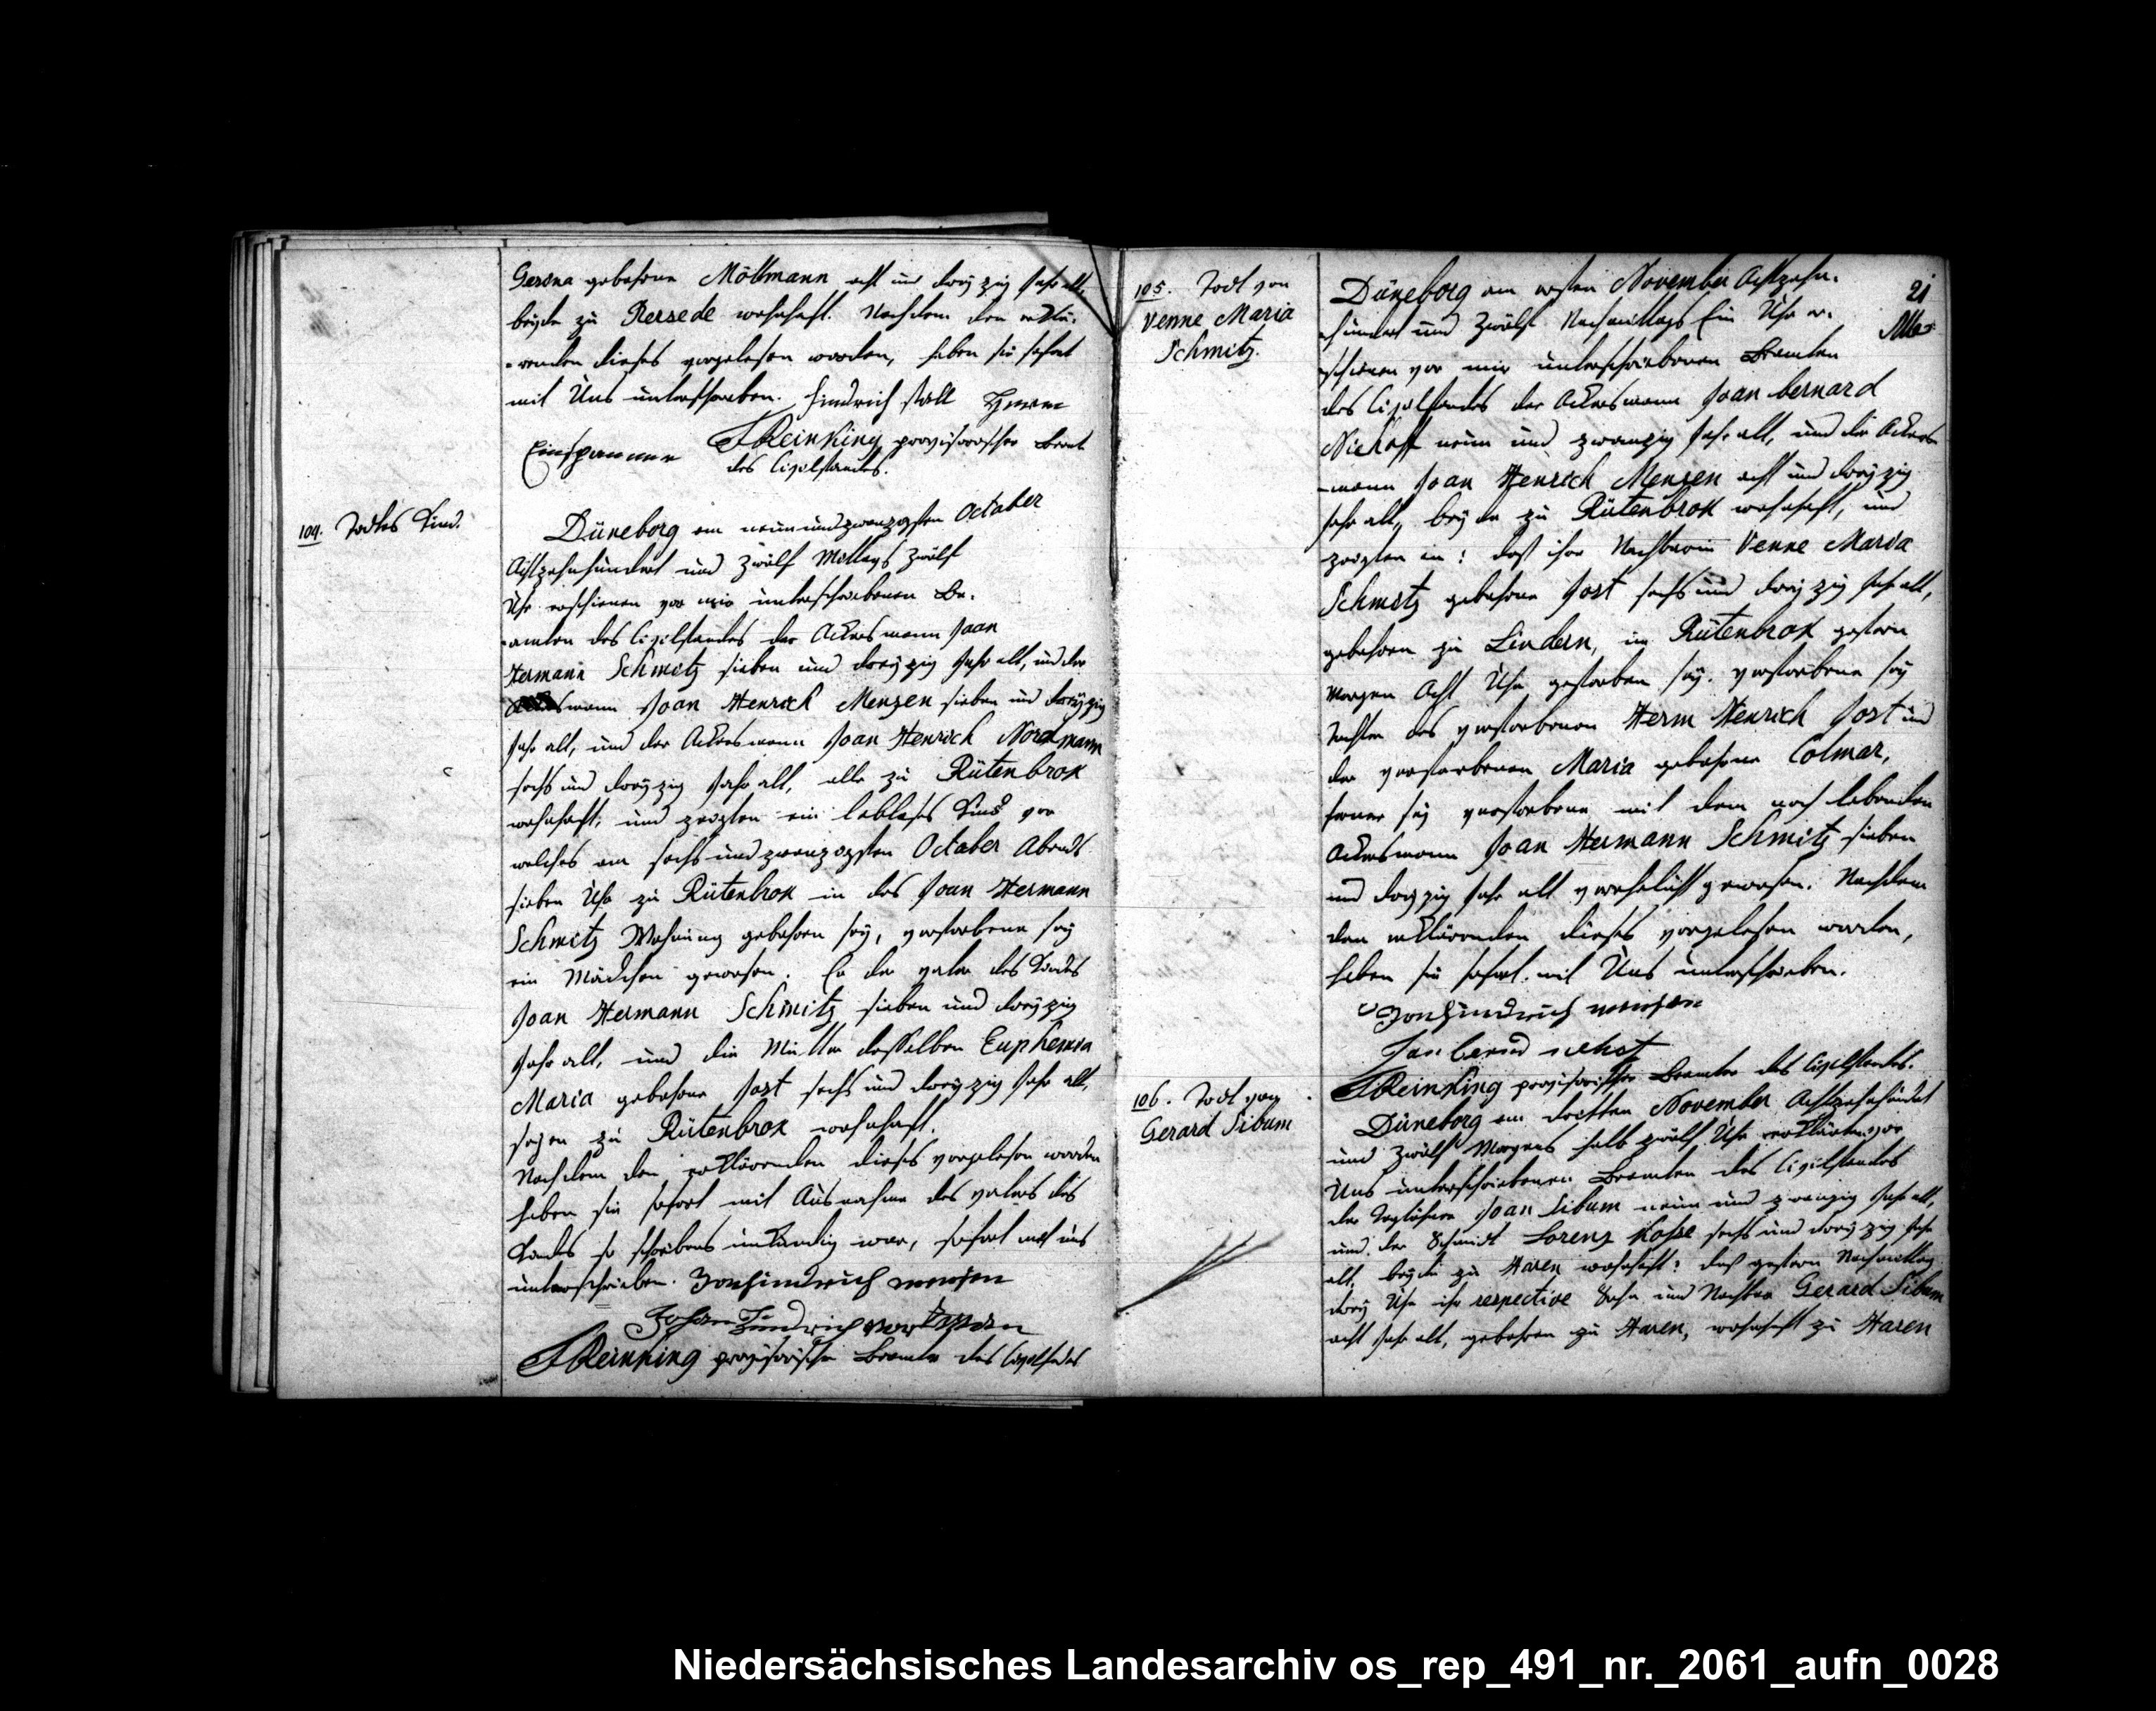 Gesina gebohrne Möllmann acht und dreyzig Jahr alt,
beyde zu Rersede wohnhaft. Nachdem den erklä-
-renden dieses vorgelesen worden, haben sie sofort
mit Uns unterschrieben. Hindrich Stall Herm
Einspanner FReinking provisorischer Beamt
des Civilstandes.
104. Todtes Kind.
Düneborg am neunundzwanzigsten October
Achtzehnhundert und Zwölf Mittags zwölf
Uhr erschienen vor mir unterschriebenen Be-
-amten des Civilstandes der Ackersmann Joan
Hermann Schmitz sieben und dreyzig Jahr alt, und der
Ackersmann Joan Henrich Menzen sieben und dreyzig
Jahr alt, und der Ackersmann Joan Henrich Nordmann
sechs und dreyzig Jahr alt, alle zu Rütenbrok
wohnhaft; und zeigten ein lebloses Kind vor
welches am sechs und zwanzigsten October Abends
sieben Uhr zu Rütenbrok in des Joan Hermann
Schmitz Wohnung gebohren sey, verstorbene sey
ein Mädchen gewesen. Er der Vater des Kindes
Joan Hermann Schmitz sieben und dreyzig
Jahr alt, und die Mutter desselben Euphemia
Maria gebohrne Jost sechs und dreyzig Jahr alt,
seyen zu Rütenbrok wohnhaft.
Nachdem den erklärenden dieses vorgelesen worden
haben sie sofort mit Ausnahme des Vaters des
Kindes so schreibens unkundig war, sofort mit uns
unterschrieben. Jonhindrich mensen
Johan Hindrich nortmann
FReinking provisorischer Beamte des Civilstandes
21
105. Todt von
Venne Maria
Schmitz.
Düneborg am ersten November Achtzehn-
-hundert und Zwölf Nachmittags Ein Uhr er-
-schienen vor mir unterschriebenen Beamten
des Civilstandes der Ackersmann Joan bernard
Niehoff neun und zwanzig Jahr alt, und der Ackers-
-mann Joan Henrich Menzen acht und dreyzig
Jahr alt, beyde zu Rütenbrok wohnhaft, und
zeigten an: daß ihre Nachbarin Venne Maria
Schmitz gebohrne Jost sechs und dreyzig Jahr alt,
gebohren zu Lindern, in Rütenbrok gestern
Morgen Acht Uhr gestorben sey. verstorbene sey
Tochter des verstorbenen Herm Henrich Jost und
der verstorbenen Maria gebohrne Colmar,
ferner sey verstorbene mit dem noch lebenden
Ackersmann Joan Hermann Schmitz sieben
und dreyzig Jahr alt verehelicht gewesen. Nachdem
den erklärenden dieses vorgelesen worden,
haben sie sofort mit Uns unterschrieben.
Jonhindrich mensen
Jan bernd niehof
FReinking provisorischer Beamter des Civilstandes.
106. Todt von
Gerard Sibum
Düneborg am dritten November Achtzehnhundert
und Zwölf Morgens halb zwölf Uhr erklärten vor
Uns unterschriebenen Beamten des Civilstandes
der Taglöhner Joan Sibum neun und zwanzig Jahr alt,
und der Schmidt Lorenz Kosse sechs und dreyzig Jahr
alt, beyde zu Haren wohnhaft: daß gestern Nachmittag
drey Uhr ihr respective Sohn und Nachbar Gerard Sibum
acht Jahr alt, gebohren zu Haren, wohnhaft zu Haren
Niedersächsisches Landesarchiv os_rep_491_nr._2061_aufn_0028